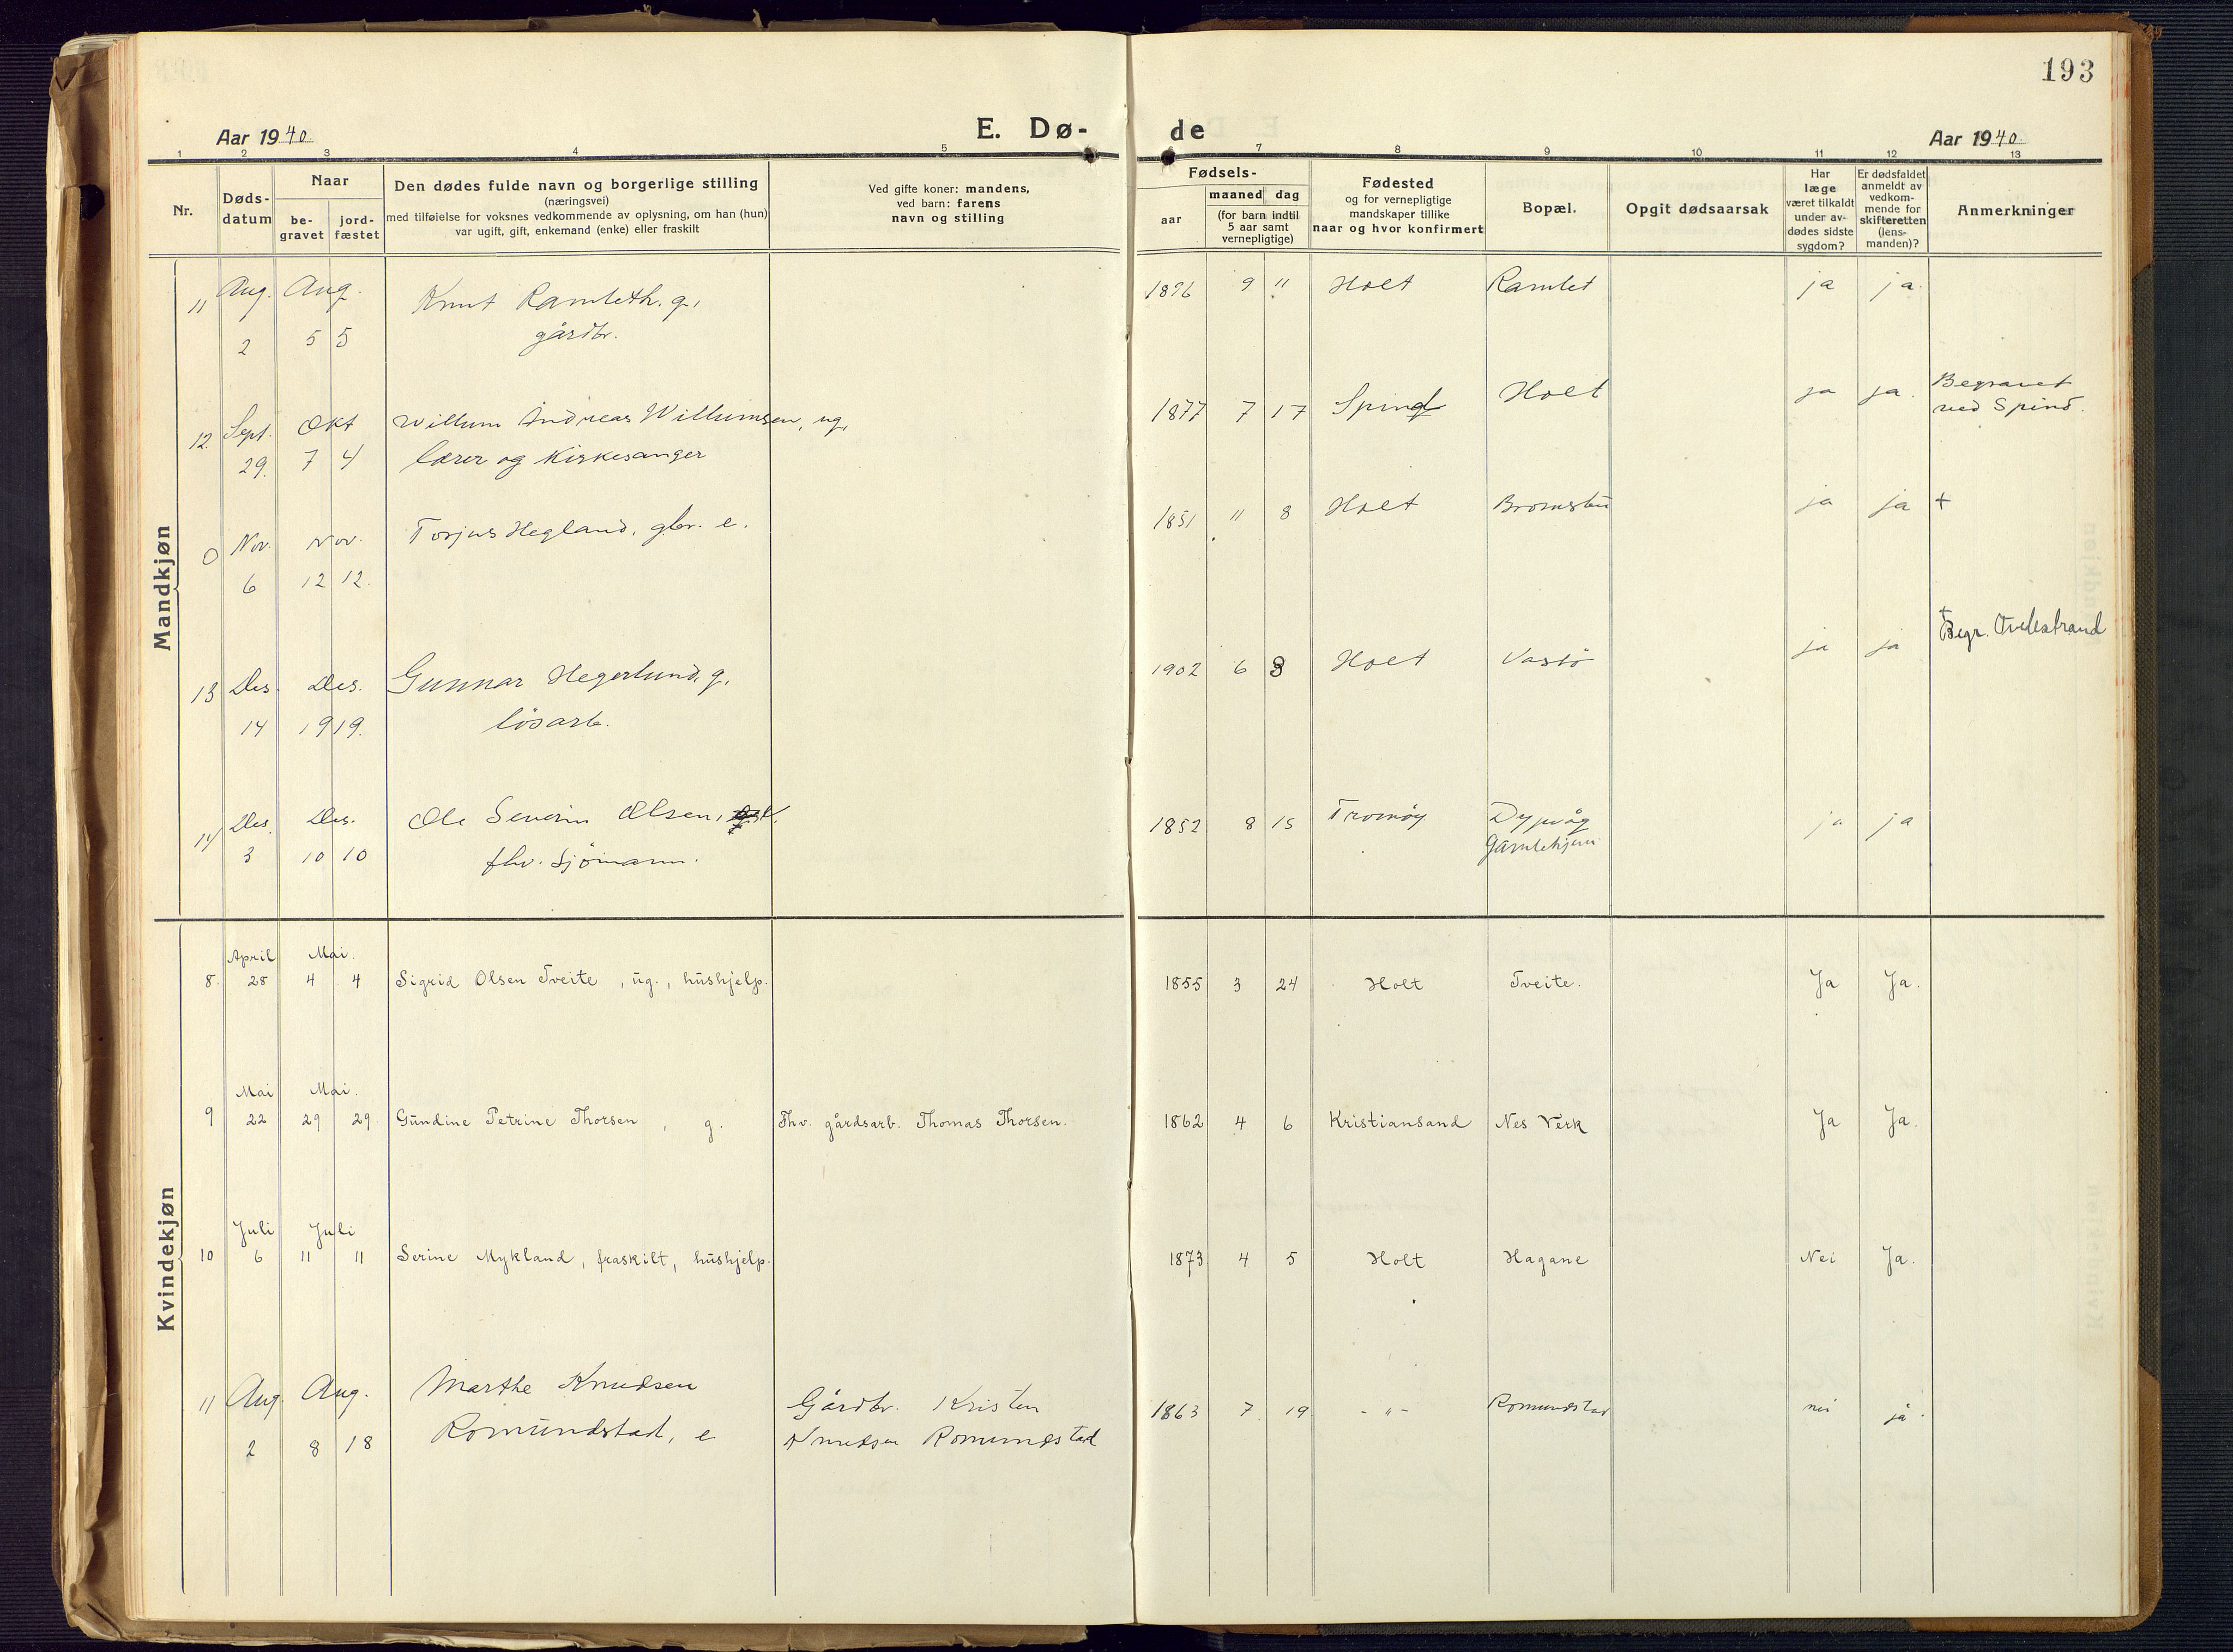 193
Aar 1940
E. Dø-
de
Aar 1940
1 2 3 4 5 6 7 8 9 10 11 12 13
Nr.
Døds-
datum
Naar
be-
gravet
jord-
fæstet
Den dødes fulde navn og borgerlige stilling
(næringsvei)
med tilføielse for voksnes vedkommende av oplysning, om han (hun)
var ugift, gift, enkemand (enke) eller fraskilt
Ved gifte koner: mandens,
ved barn: farens
navn og stilling
Fødsels-
aar
maaned dag
(for barn indtil
5 aar samt
vernepligtige)
Fødested
og for vernepligtige
mandskaper tillike
naar og hvor konfirmert
Bopæl.
Opgit dødsaarsak
Har
læge
været tilkaldt
under av-
dødes sidste
sygdom?
Er dødsfaldet
anmeldt av
vedkom-
mende for
skifteretten
(lens-
manden)?
Anmerkninger
Mandkjøn
11 Aug. Aug. Knut Ramleth. g, 1896 9 11 Holt Ramlet ja ja.
2 5 5 gårdbr.
12. Sept. Okt Willum Andreas Willumsen, ug, 1877 7 17 Spind Holt ja ja. Begravet
29. 7 4 lærer og Kirkesanger ved Spind.
0 Nov. Nov. Torjus Hegland, gbr. e. 1851 11 8 Holt Bromsbu ja ja +
6 12 12.
13 Des. Des. Gunnar Hegerlund, g. 1902 6 8 Holt Vastø ja ja + Begr. Tvedestrand
14 19 19. løsarb.
14 Des. Des. Ole Severin Olsen, e. 1852 8 15 Tromøy Dypvåg ja ja
3 10 10 fhv. sjømann. Gamlehjem
Kvindekjøn
April Mai.
8. 28 4 4 Sigrid Olsen Tveite, ug., hushjelp. 1855 3 24 Holt Tveite. Ja Ja.
Mai Mai.
9 22 29 29. Gundine Petrine Thorsen, g. Fhv. gårdsarb. Thomas Thorsen. 1862 4 6 Kristiansand Nes Verk Ja Ja.
Juli Juli
10 6 11 11 Serine Mykland, fraskilt, hushjelp. 1873 4 5 Holt Hagane Nei Ja.
11 Aug. Aug. Marthe Knudsen Gårdbr. Kristen 1863 7 19 - " - Romundstad nei ja.
2 8 18 Romundstad, e Knudsen Romundstad